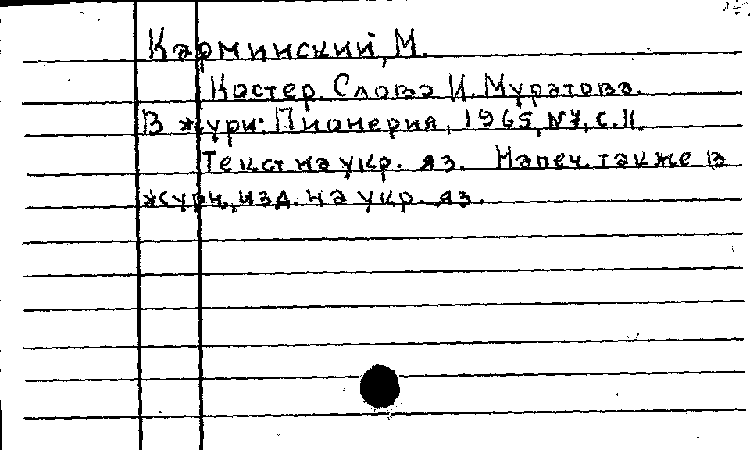 Карминский, М.
Костер. Слова И. Муратова.
В журн: Пионерия, 1965, №7, с. 11.
Текст на укр. яз. Напеч. также в
журн, изд. на укр. яз.